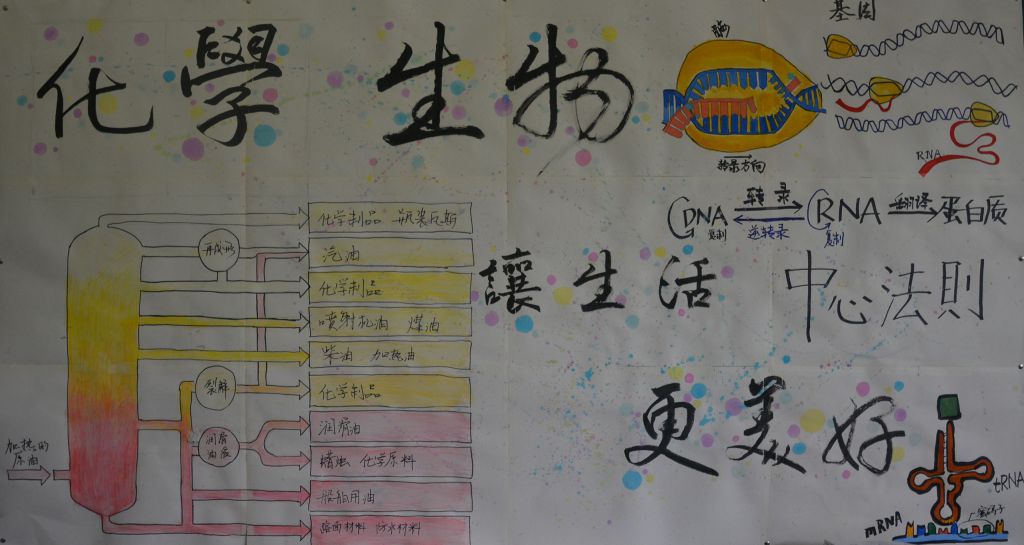 化學 生物
基因
酶
转录方向
RNA
DNA 转录 RNA 翻译 蛋白质
复制 逆转录 复制
讓生活
中心法則
更美好
化学制品 瓶装瓦斯
汽油
化学制品
喷射机油 煤油
柴油 加热油
裂解
化学制品
润滑油
蜡烛 化学原料
船舶用油
路面材料 防水材料
加热的
原油
tRNA
mRNA